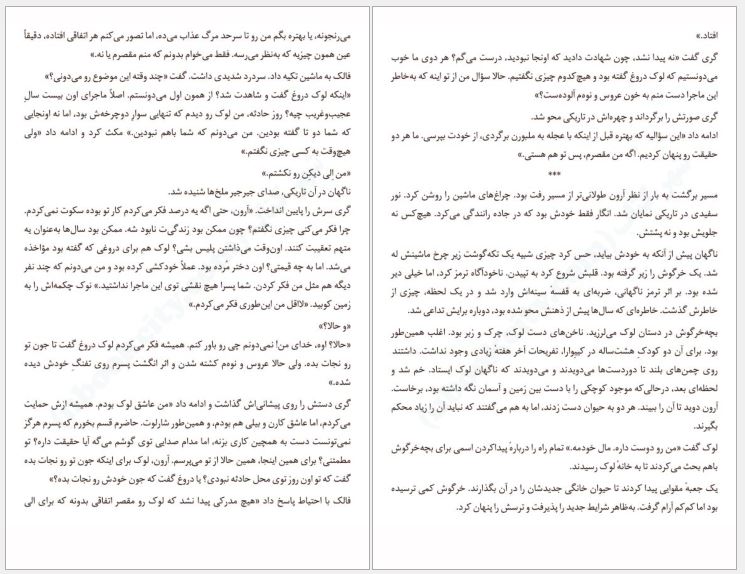 افتاد.»
گری گفت «نه پیدا نشد، چون شهادت دادید که اونجا نبودید، درست می‌گم؟ هر دوی ما خوب
می‌دونستیم که لوک دروغ گفته بود و هیچ‌کدوم چیزی نگفتیم. حالا سؤال من از تو اینه که به‌خاطر
این ماجرا دست منم به خون عروس و نوه‌م آلوده‌ست؟»
گری صورتش را برگرداند و چهره‌اش در تاریکی محو شد.
ادامه داد «این سؤالیه که بهتره قبل از اینکه با عجله به ملبورن برگردی، از خودت بپرسی. ما هر دو
حقیقت رو پنهان کردیم. اگه من مقصرم، پس تو هم هستی.»
***
مسیر برگشت به بار از نظر آرون طولانی‌تر از مسیر رفت بود. چراغ‌های ماشین را روشن کرد. نور
سفیدی در تاریکی نمایان شد. انگار فقط خودش بود که در جاده رانندگی می‌کرد. هیچ‌کس نه
جلویش بود و نه پشتش.
ناگهان پیش از آنکه به خودش بیاید، حس کرد چیزی شبیه یک تکه‌گوشت زیر چرخ ماشینش له
شد. یک خرگوش را زیر گرفته بود. قلبش شروع کرد به تپیدن. ناخودآگاه ترمز کرد، اما خیلی دیر
شده بود. بر اثر ترمز ناگهانی، ضربه‌ای به قفسهٔ سینه‌اش وارد شد و در یک لحظه، چیزی از
خاطرش گذشت. خاطره‌ای که سال‌ها پیش از ذهنش محو شده بود، دوباره برایش تداعی شد.
بچه‌خرگوش در دستان لوک می‌لرزید. ناخن‌های دست لوک، چرک و زبر بود. اغلب همین‌طور
بود. برای آن دو کودکِ هشت‌ساله در کیوورا، تفریحات آخر هفته زیادی وجود نداشت. داشتند
روی چمن‌های بلند تا دوردست‌ها می‌دویدند و می‌دویدند که ناگهان لوک ایستاد. خم شد و
لحظه‌ای بعد، درحالی‌که موجود کوچکی را با دست بین زمین و آسمان نگه داشته بود، برخاست.
آرون دوید تا آن را ببیند. هر دو به حیوان دست زدند، اما به هم می‌گفتند که نباید آن را زیاد محکم
بگیرند.
لوک گفت «من رو دوست داره. مال خودمه.» تمام راه را دربارهٔ پیداکردن اسمی برای بچه‌خرگوش
باهم بحث می‌کردند تا به خانهٔ لوک رسیدند.
یک جعبهٔ مقوایی پیدا کردند تا حیوان خانگی جدیدشان را در آن بگذارند. خرگوش کمی ترسیده
بود اما کم‌کم آرام گرفت. به‌ظاهر شرایط جدید را پذیرفت و ترسش را پنهان کرد.
می‌رنجونه، یا بهتره بگم من رو تا سرحد مرگ عذاب می‌ده، اما تصور می‌کنم هر اتفاقی افتاده، دقیقاً
عین همون چیزیه که به‌نظر می‌رسه. فقط می‌خوام بدونم که منم مقصرم یا نه.»
فالک به ماشین تکیه داد. سردرد شدیدی داشت. گفت «چند وقته این موضوع رو می‌دونی؟»
«اینکه لوک دروغ گفت و شاهدت شد؟ از همون اول می‌دونستم. اصلاً ماجرای اون بیست سال
عجیب‌وغریب چیه؟ روز حادثه، من لوک رو دیدم که تنهایی سوار دوچرخه‌ش بود، اما نه اونجایی
که شما دو تا گفته بودین. من می‌دونم که شما باهم نبودین.» مکث کرد و ادامه داد «ولی
هیچ‌وقت به کسی چیزی نگفتم.»
«من اِلی دیکِن رو نکشتم.»
ناگهان در آن تاریکی، صدای جیرجیر ملخ‌ها شنیده شد.
گری سرش را پایین انداخت. «آرون، حتی اگه یه درصد فکر می‌کردم کار تو بوده سکوت نمی‌کردم.
چرا فکر می‌کنی چیزی نگفتم؟ چون ممکن بود زندگی‌ت نابود شه. ممکن بود سال‌ها به‌عنوان یه
متهم تعقیبت کنند. اون‌وقت می‌ذاشتن پلیس بشی؟ لوک هم برای دروغی که گفته بود مؤاخذه
می‌شد. اما به چه قیمتی؟ اون دختر مُرده بود. عملاً خودکشی کرده بود و من می‌دونم که چند نفر
دیگه هم مثل من فکر کردن. شما پسرا هیچ نقشی توی این ماجرا نداشتید.» نوک چکمه‌اش را به
زمین کوبید. «لااقل من این‌طوری فکر می‌کردم.»
«و حالا؟»
«حالا؟ اوه، خدای من! نمی‌دونم چی رو باور کنم. همیشه فکر می‌کردم لوک دروغ گفت تا جون تو
رو نجات بده. ولی حالا عروس و نوه‌م کشته شدن و اثر انگشت پسرم روی تفنگِ خودش دیده
شده.»
گری دستش را روی پیشانی‌اش گذاشت و ادامه داد «من عاشق لوک بودم. همیشه ازش حمایت
می‌کردم، اما عاشق کارن و بیلی هم بودم، و همین‌طور شارلوت. حاضرم قسم بخورم که پسرم هرگز
نمی‌تونست دست به همچین کاری بزنه، اما مدام صدایی توی گوشم می‌گه آیا حقیقت داره؟ تو
مطمئنی؟ برای همین اینجا، همین حالا از تو می‌پرسم. آرون، لوک برای اینکه جون تو رو نجات بده
گفت که تو اون روز توی محل حادثه نبودی؟ یا دروغ گفت که جون خودش رو نجات بده؟»
فالک با احتیاط پاسخ داد «هیچ مدرکی پیدا نشد که لوک رو مقصر اتفاقی بدونه که برای الی